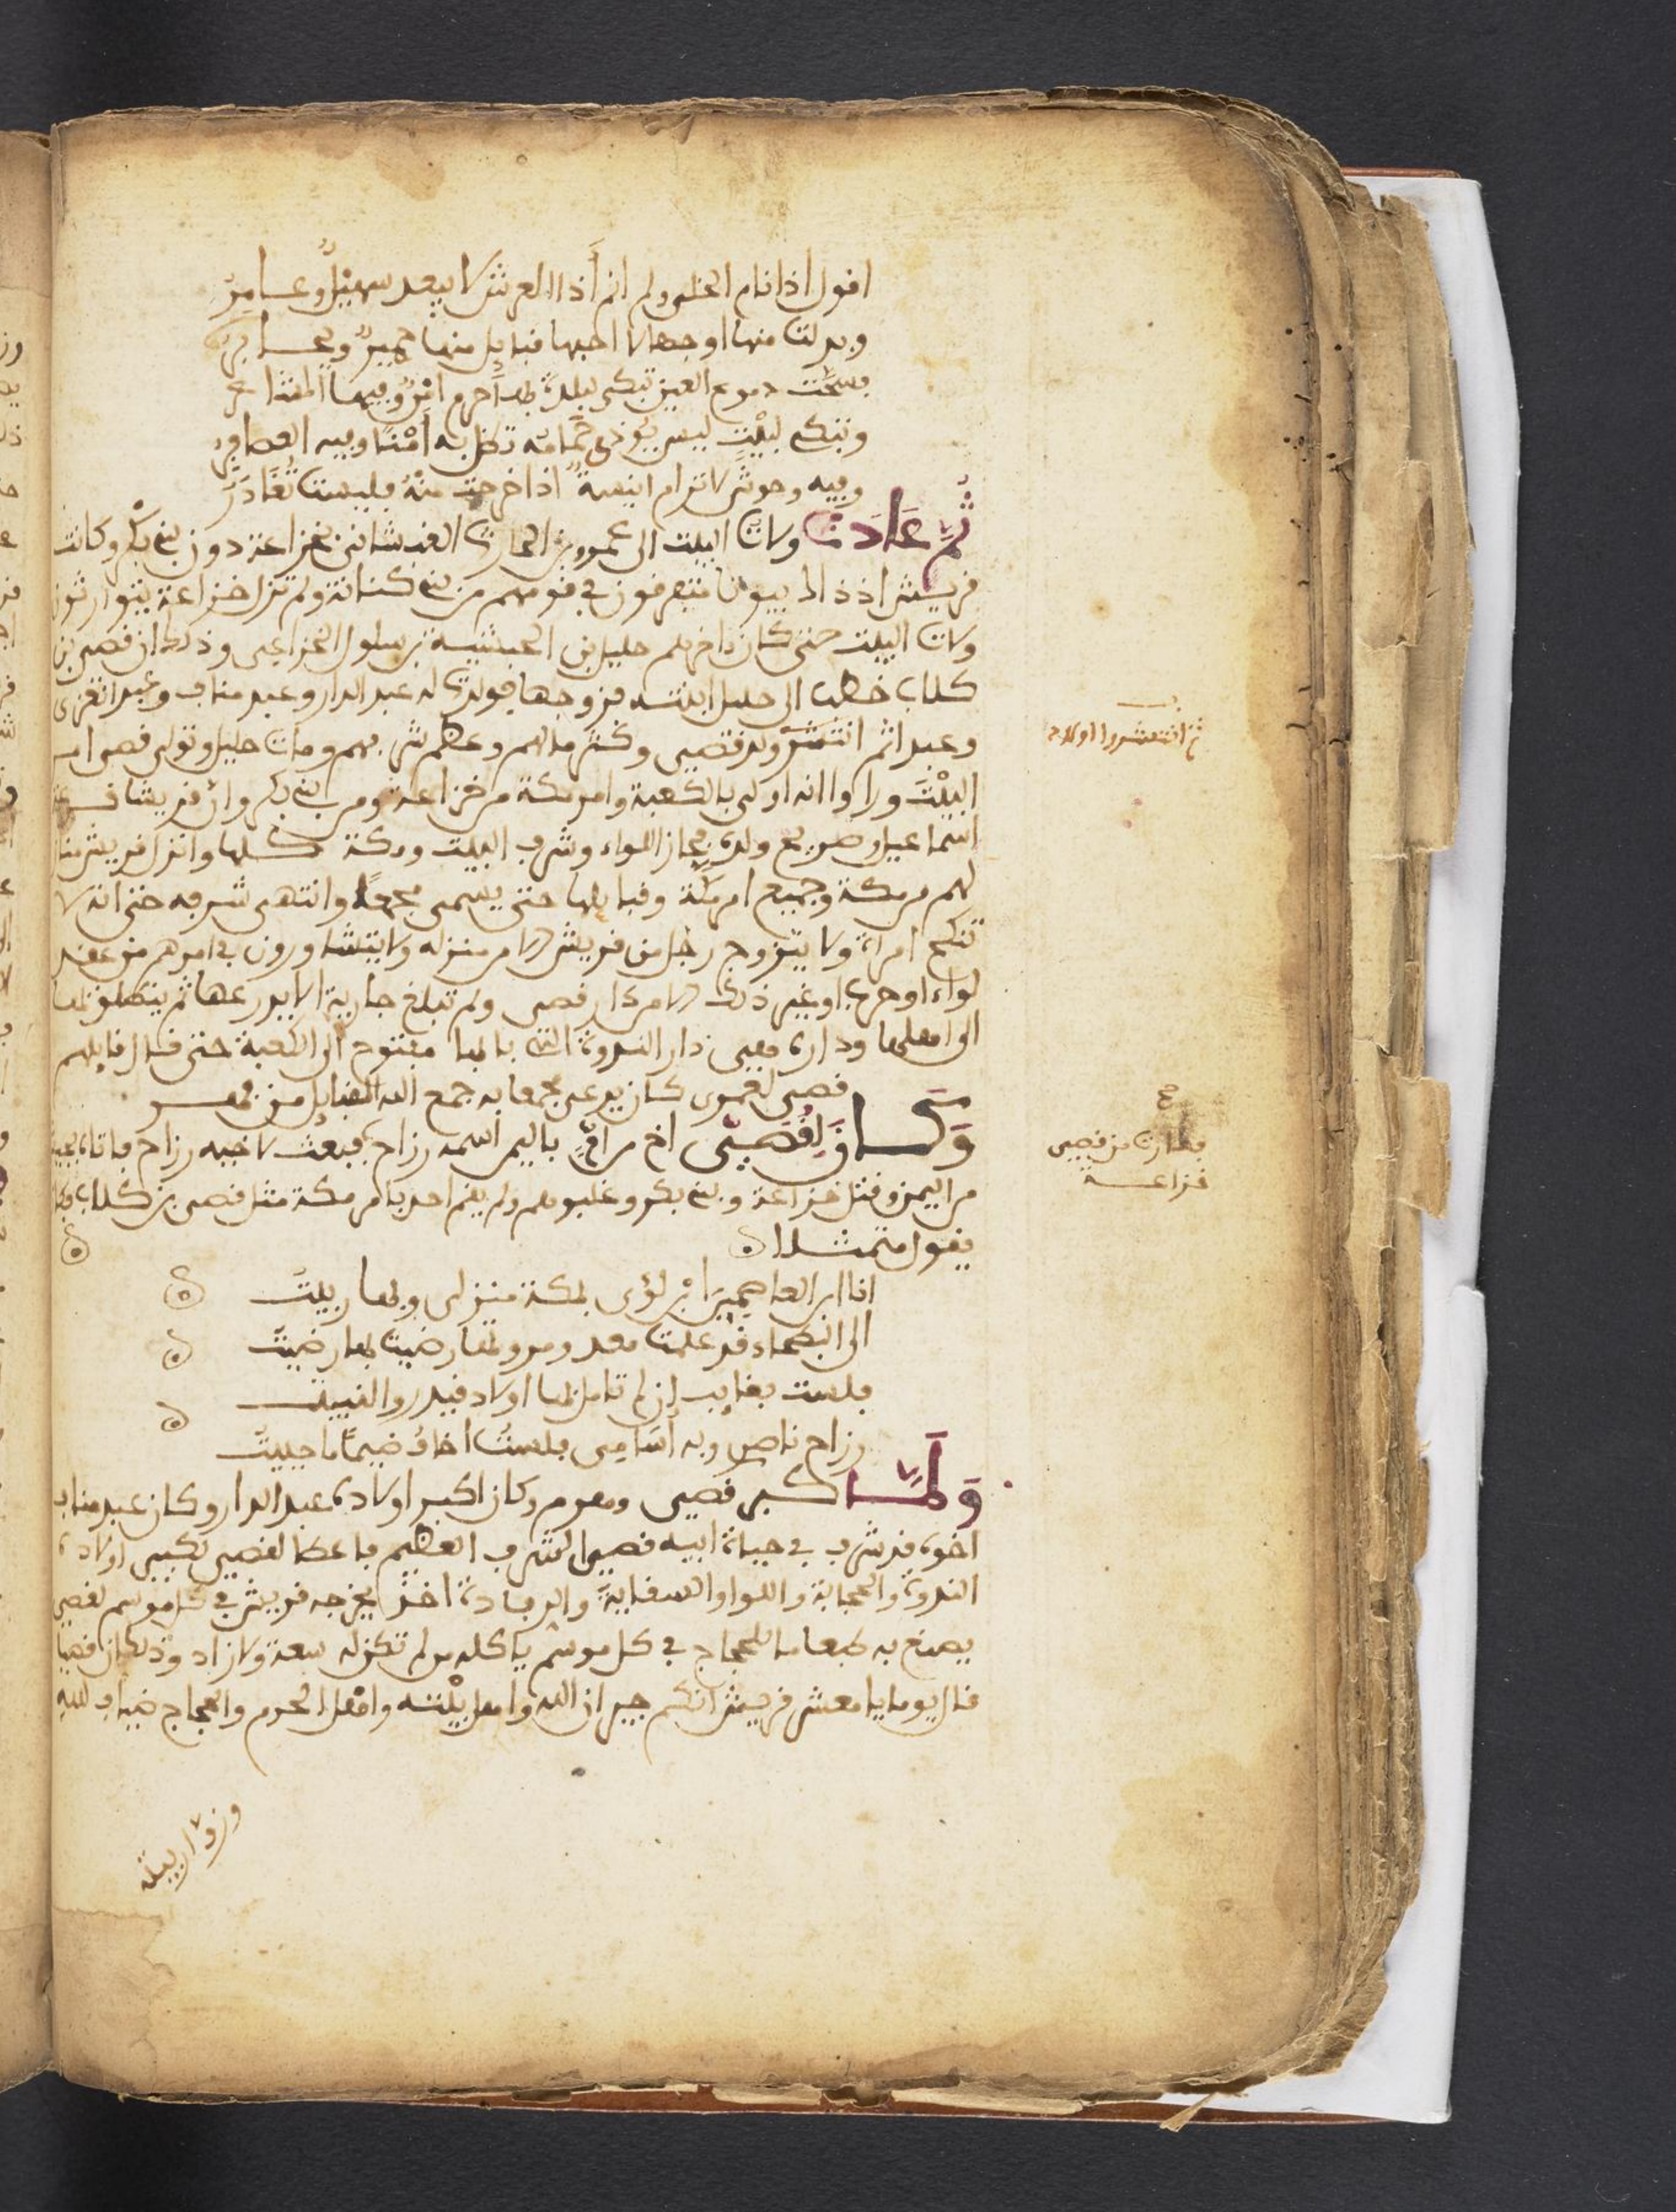 اقول اذا نام الخلي ولم انم أذا العرش لا يبعد سهيل وعامر
وبدلت منها اوجها لا احبها قبايل منها حمير ويحابر
فسحت دموع العين تبكي لبلدة بها حرم امن وفيها المشاعر
وتبكي لبيت ليس يوذى حمامه تظل به أمنا وفيه العصافر
وفيه وحوش لا ترام انيسة اذا خرجت منه فليست تغادر
ثم عادت ولات البيت الى عمرو بن الحارث الغبشاني بخزاعة دون بني بكر وكانت
قريش اذ ذاك بيوتا متفرقون في قومهم من بني كنانة ولم تزل خزاعة يتوارثون
ولات البيت حتى كان اخرهم حليل بن الحبشية بن سلول الخزاعي وذلك ان قصي بن
كلاب خطب الى حليل ابنته فزوجها فولدت له عبد الدار وعبد مناف وعبد العزى
وعبد اثم انتشر ولد قصي وكثر مالهم وعظم شرفهم ومات حليل وتولى قصي امر
البيت ورأوا انه اولى بالكعبة وامر مكة من خزاعة ومن بني بكر وان قريشا
اسماعيل وصريح ولده فحاز اللواء وشرف البيت ومكة كلها وانزل قريش منا
لهم من مكة وجميع امر مكة وقبايلها حتى يسمى مجمعا وانتهى شرفه حتى انه لا
تنكح امراة ولا يتزوج رجل من قريش الا من منزله ولا يتشاورون في امرهم من عقد
لواء او حرب او غير ذلك الا من دار قصي ولم تبلغ جارية الا يدرعها ثم ينطلق بها
الى اهلها وداره فهي دار الندوة التي بابها مفتوح الى الكعبة حتى قال قايلهم
قصي لعمري كان يدعى مجمعا به جمع الله القبايل من فهر
وكان لقصي اخ من ام باليمن اسمه رزاح فبعث لاخيه رزاح فاتاه
من اليمن وقتل خزاعة وبني بكر وغلبوهم ولم يقم احد بامر مكة مثل قصي بن كلاب فكان
يقول متمثلا
انا ابن العاصمين ابن لؤي بمكة منزلي وبها ربيت
الى البطحاء قد علمت معد ومروتها رضيت بها رضيت
فلست بغايب ان لم تاهل بها اولاد قيدر والنبيت
رزاح ناصري وبه اسامي فلست اخاف ضيما ما حييت
ولما كبر قصي وهرم وكان اكبر اولاده عبد الدار وكان عبد مناف
اخوه قد شرف في حياة ابيه قصي الشرف العظيم فاعطا لقصي لكبير اولاده
الندوة والحجابة واللوا والسقاية والرفادة اخذ يخرجه قريش في كل موسم لقصي
يصنع به طعاما للحجاج في كل موسم ياكله من لم تكن له سعة ولا زاد وذلك ان قصيا
قال يوما يا معشر قريش انكم جيران الله واهل بيته واهل الحرم والحجاج ضياف لله
وزوار بيته
ثم انتشروا اولاد
فطارت من قصي
خزاعة